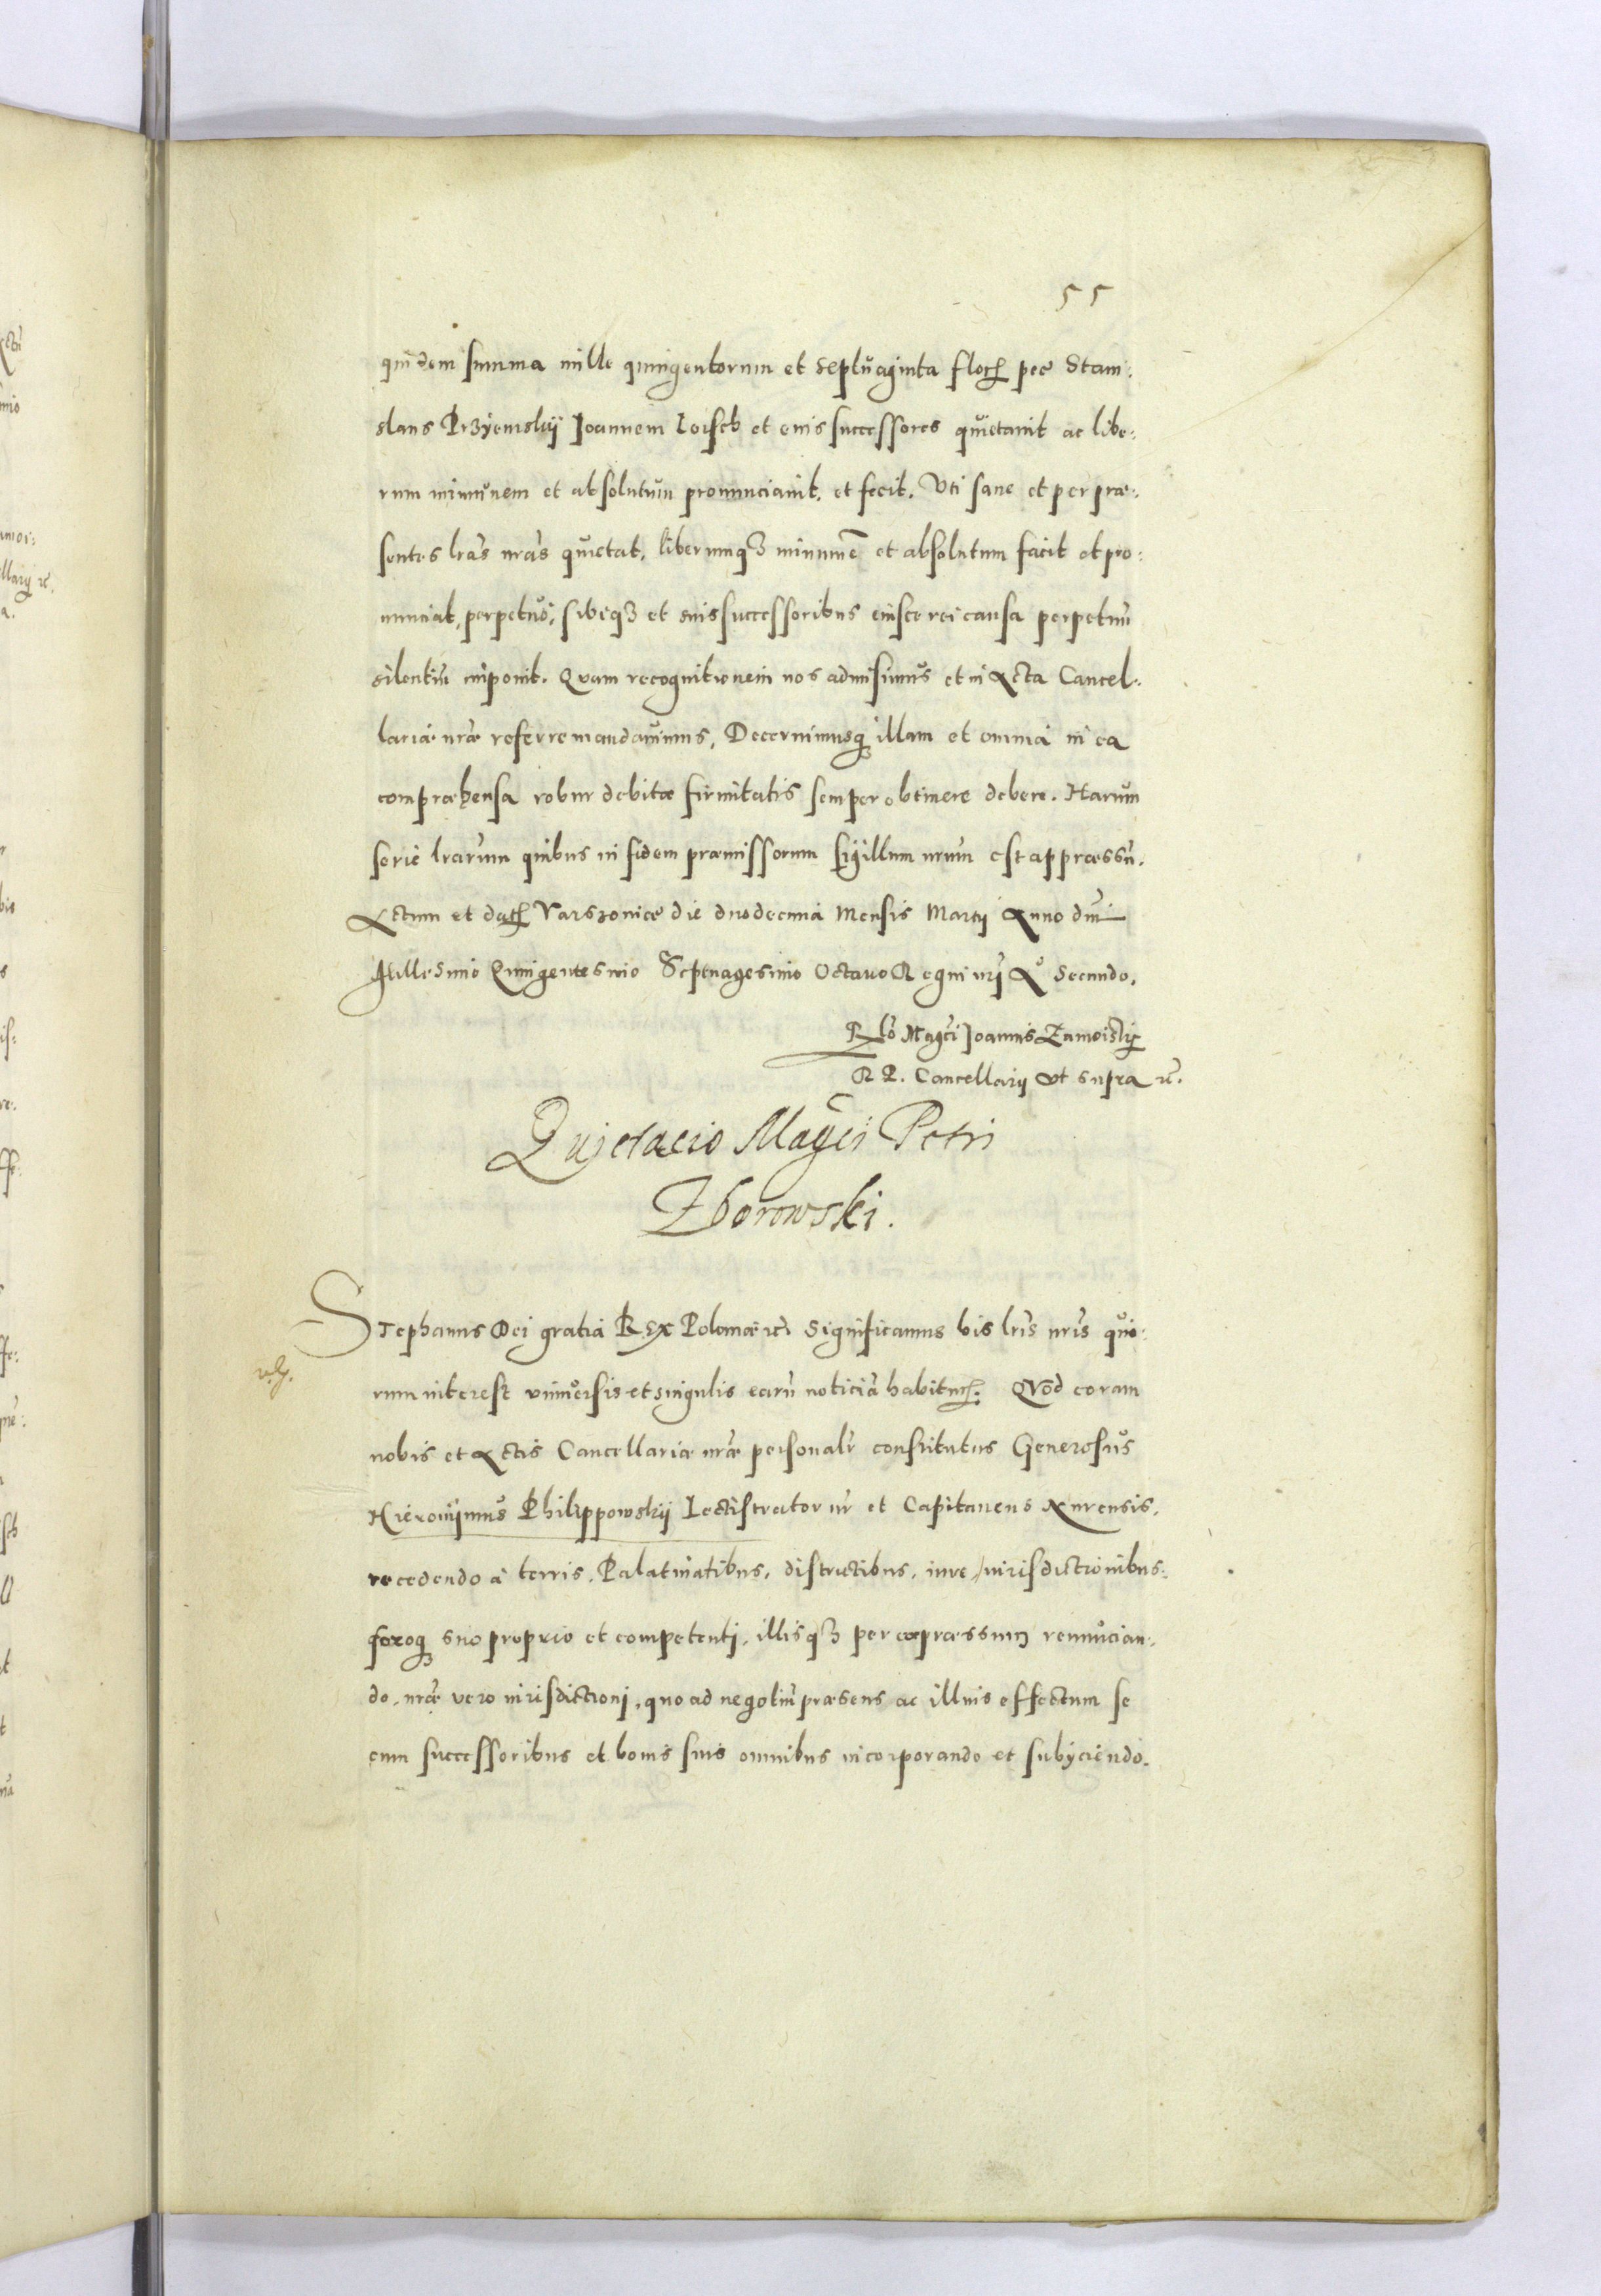 55
quidem summa mille quingentorum et septuaginta floꝝ pce Stani:
slaus Przÿemskij Joannem Loisch et eius successores quietauit ac libe:
rum immunem et absolutum pronunciauit. et fecit. Vti sane et per præ:
sentes lras nras quietat, liberumqȝ immunē et absolutum facit et pro:
nunciat, perpetuò, sibiqȝ et suis successoribus eiusce rei causa perpetuū
silentiū imponit. Quam recognitionem nos admisimus et in Acta Cancel:
lariæ nræ referre mandauimus, Decernimusqȝ illam et omnia in ea
compræhensa robur debitæ firmitatis semper obtinere debere. Harum
serie lrarum quibus in fidem præmissorum sigillum nrum est appræssū.
Actum et datꝝ Varszouiæ die duodecima Mensis Martij Anno dni
Millesimo Quingentesimo Septuagesimo Octauo Regni nri Aº Secundo.
Rlo Magci Joannis Zamoiskij
R P. Cancellarij vt supra rc.
Qujetacio Magci Petri
Zborowski.
Stephanus Dei gratia Rex Poloniæ rc. Significamus his lris nris quo:
rum interest vniuersis et singulis earū noticiā habituꝝ. Quod coram
nobis et Actis Cancellariæ nræ personalr constitutus Generosus
Hieronijmus Philippowskij Lectistrator nr et Capitaneus Xnrensis,
recedendo à terris. Palatinatibus, districtibus, iure, iurisdictionibus:
foroqȝ suo proprio et competenti, illisqȝ per expræssum renuncian:
do, nræ vero iurisdictioni, quo ad negotiū præsens ac illius effectum se
cum successoribus et bonis suis omnibus incorporando et subÿciendo.